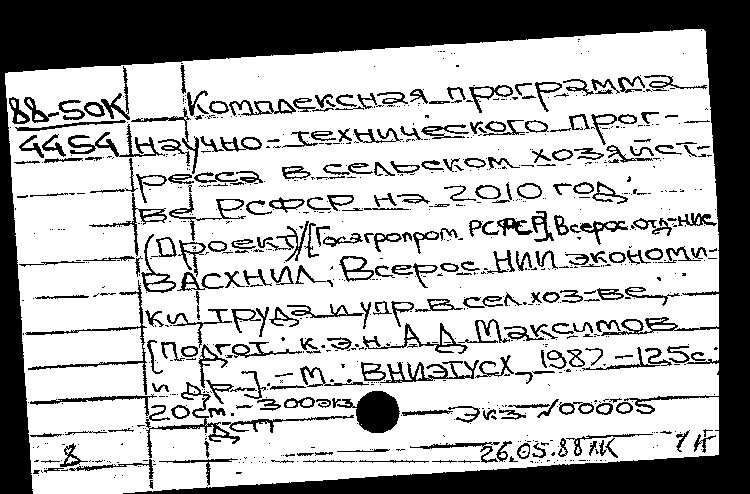 88-50К Комплексная программа
4454 научно-технического прог-
ресса в сельском хозяйст-
ве РСФСР на 2010 год:
(Проект)/[Госагропром РСФСР], Всерос. отд-ние
ВАСХНИЛ; Всерос. НИИ экономи-
ки, труда и упр. в сел. хоз-ве;
[Подгот.: к.э.н. А.Д. Максимов
и др.]. - М.: ВНИЭТУСХ, 1987 - 125с.
20см. - 300экз. Экз. №00005
ДСП
8 26.05.88 ЛК